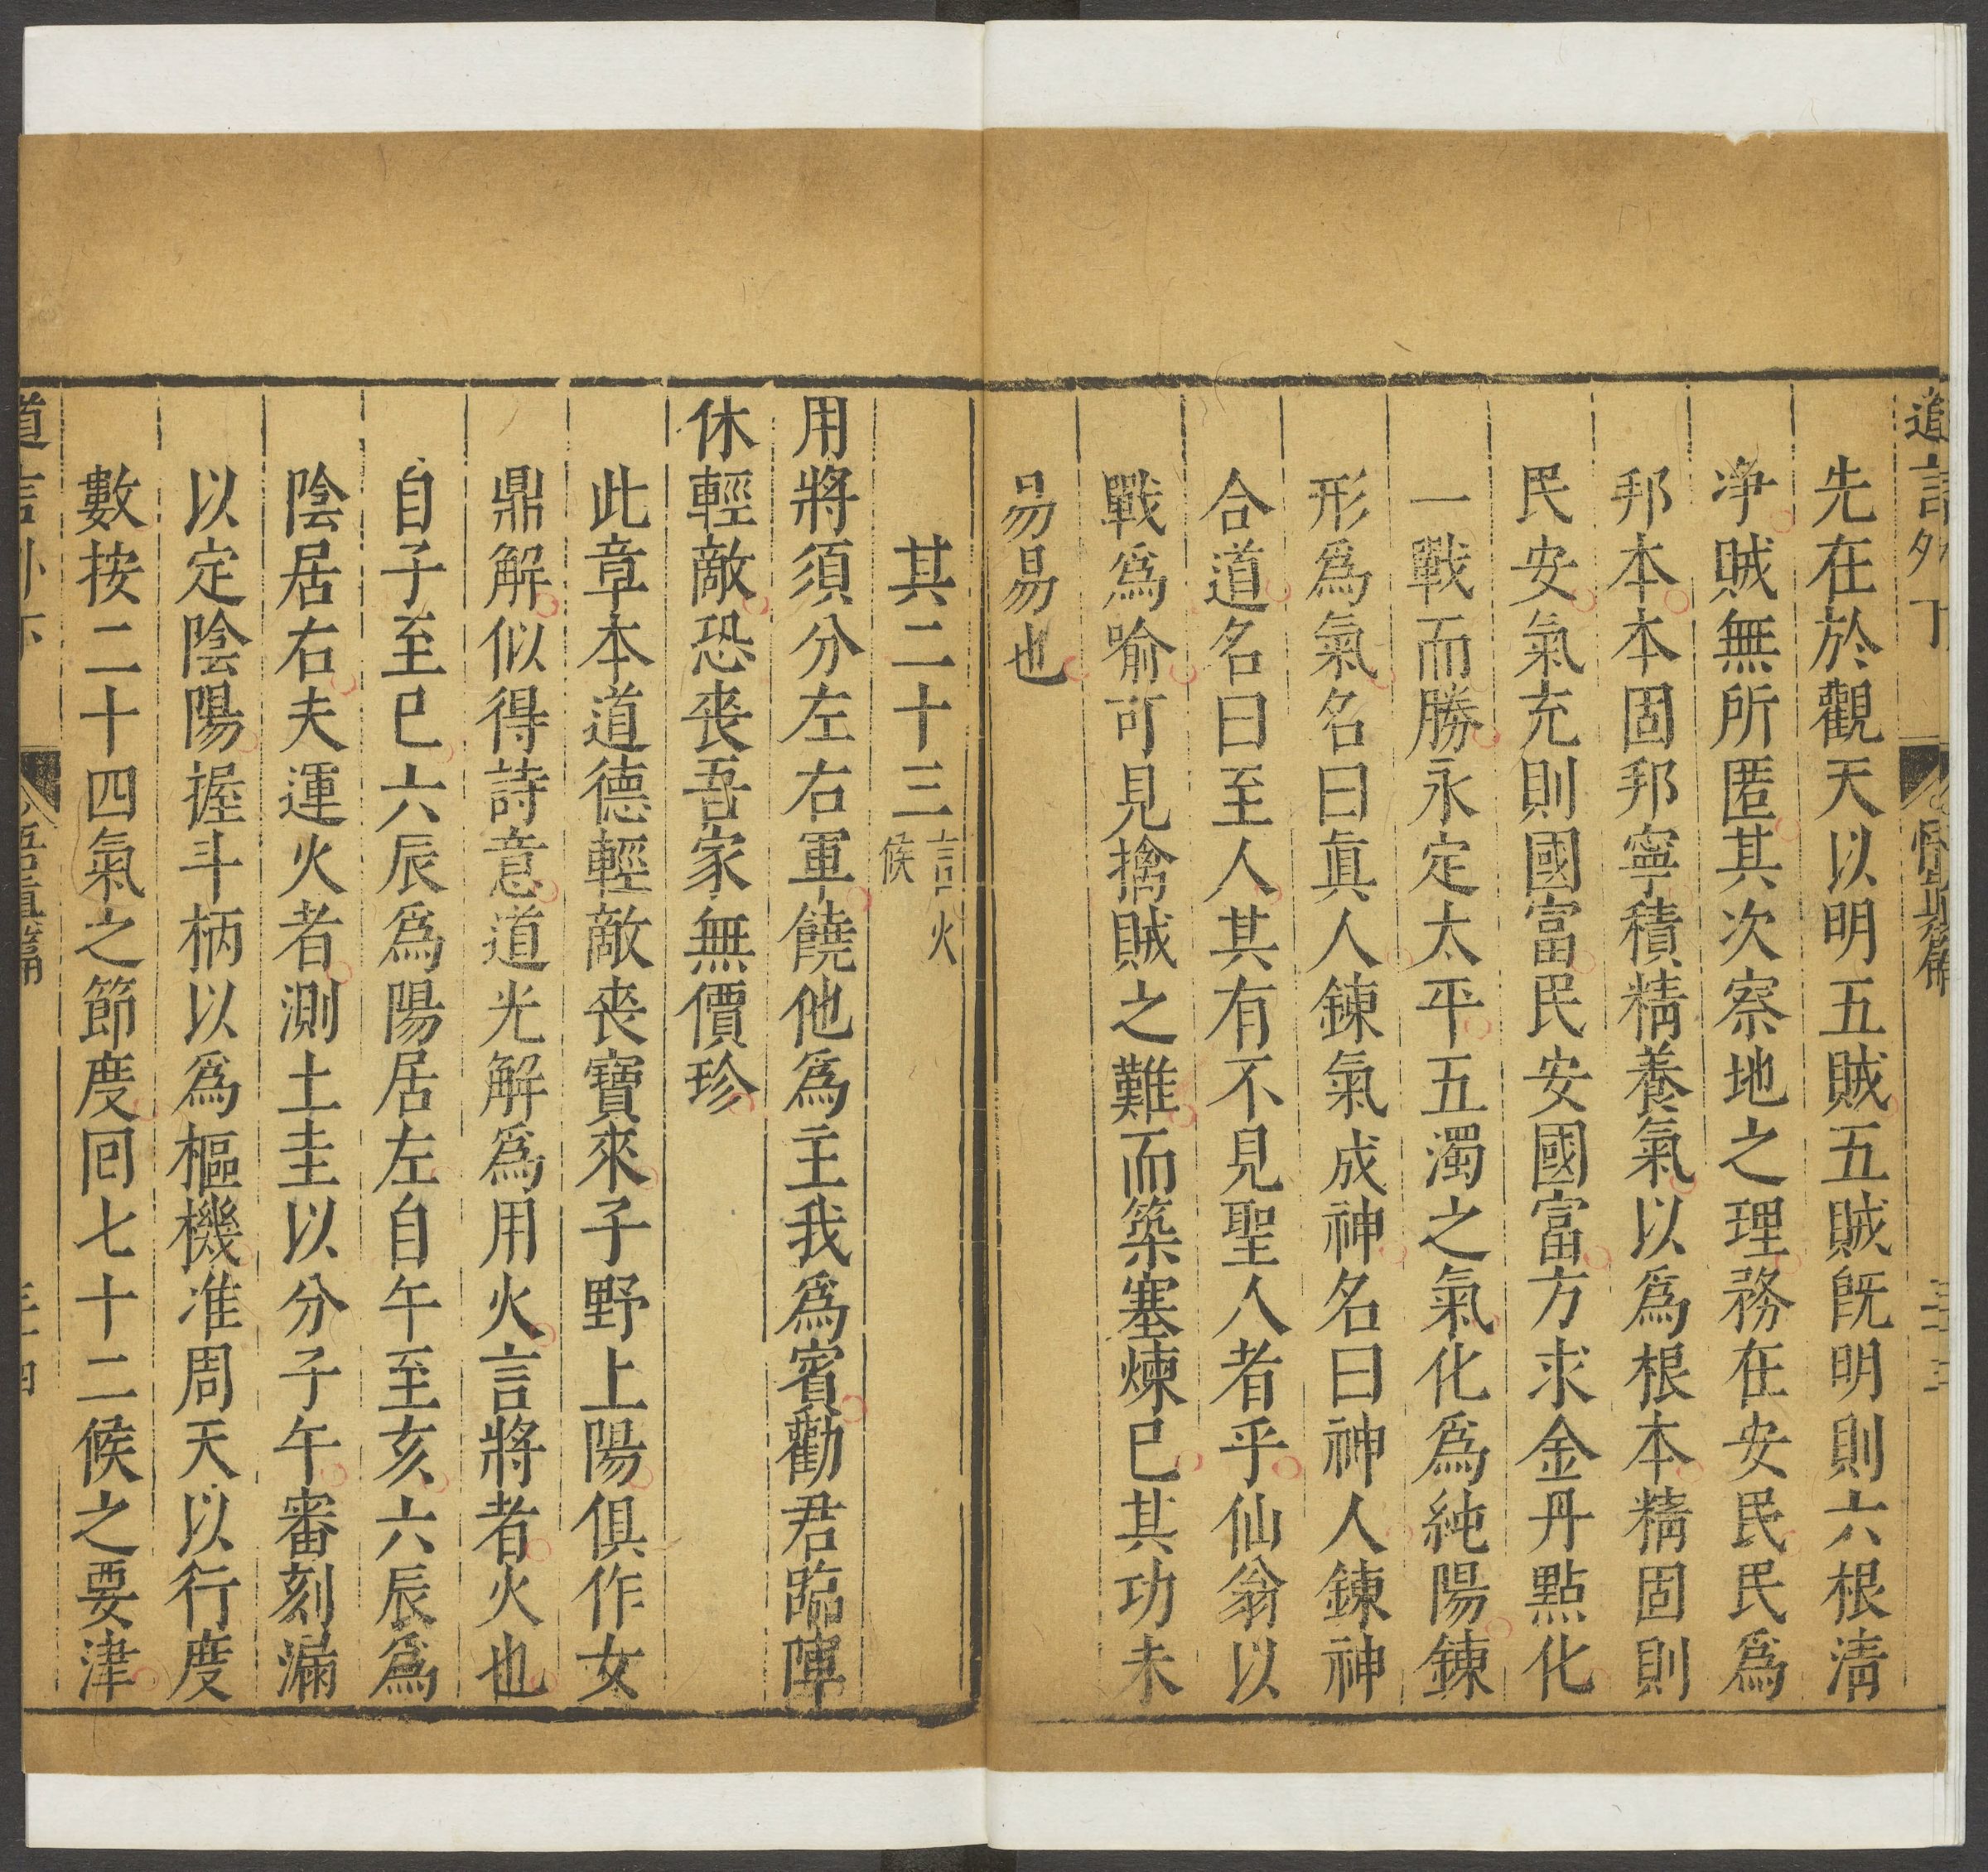 道言外下 悟真篇 三十三
先在於觀天以明五賊五賊旣明則六根清
净賊無所匿其次察地之理務在安民民爲
邦本本固邦寧積精養氣以爲根本精固則
民安氣充則國富民安國富方求金丹點化
一戰而勝永定太平五濁之氣化爲純陽鍊
形爲氣名曰眞人鍊氣成神名曰神人鍊神
合道名曰至人其有不見聖人者乎仙翁以
戰爲喻可見擒賊之難而築塞煉已其功未
易易也
其二十三 言火候
用將須分左右軍饒他爲主我爲賓勸君臨陣
休輕敵恐丧吾家無價珍
此章本道德輕敵丧寶來子野上陽俱作女
鼎解似得詩意道光解爲用火言將者火也
自子至巳六辰爲陽居左自午至亥六辰爲
陰居右夫運火者測土圭以分子午審刻漏
以定陰陽握斗柄以爲樞機准周天以行度
數按二十四氣之節度囘七十二候之要津
道言外下 悟真篇 三十四